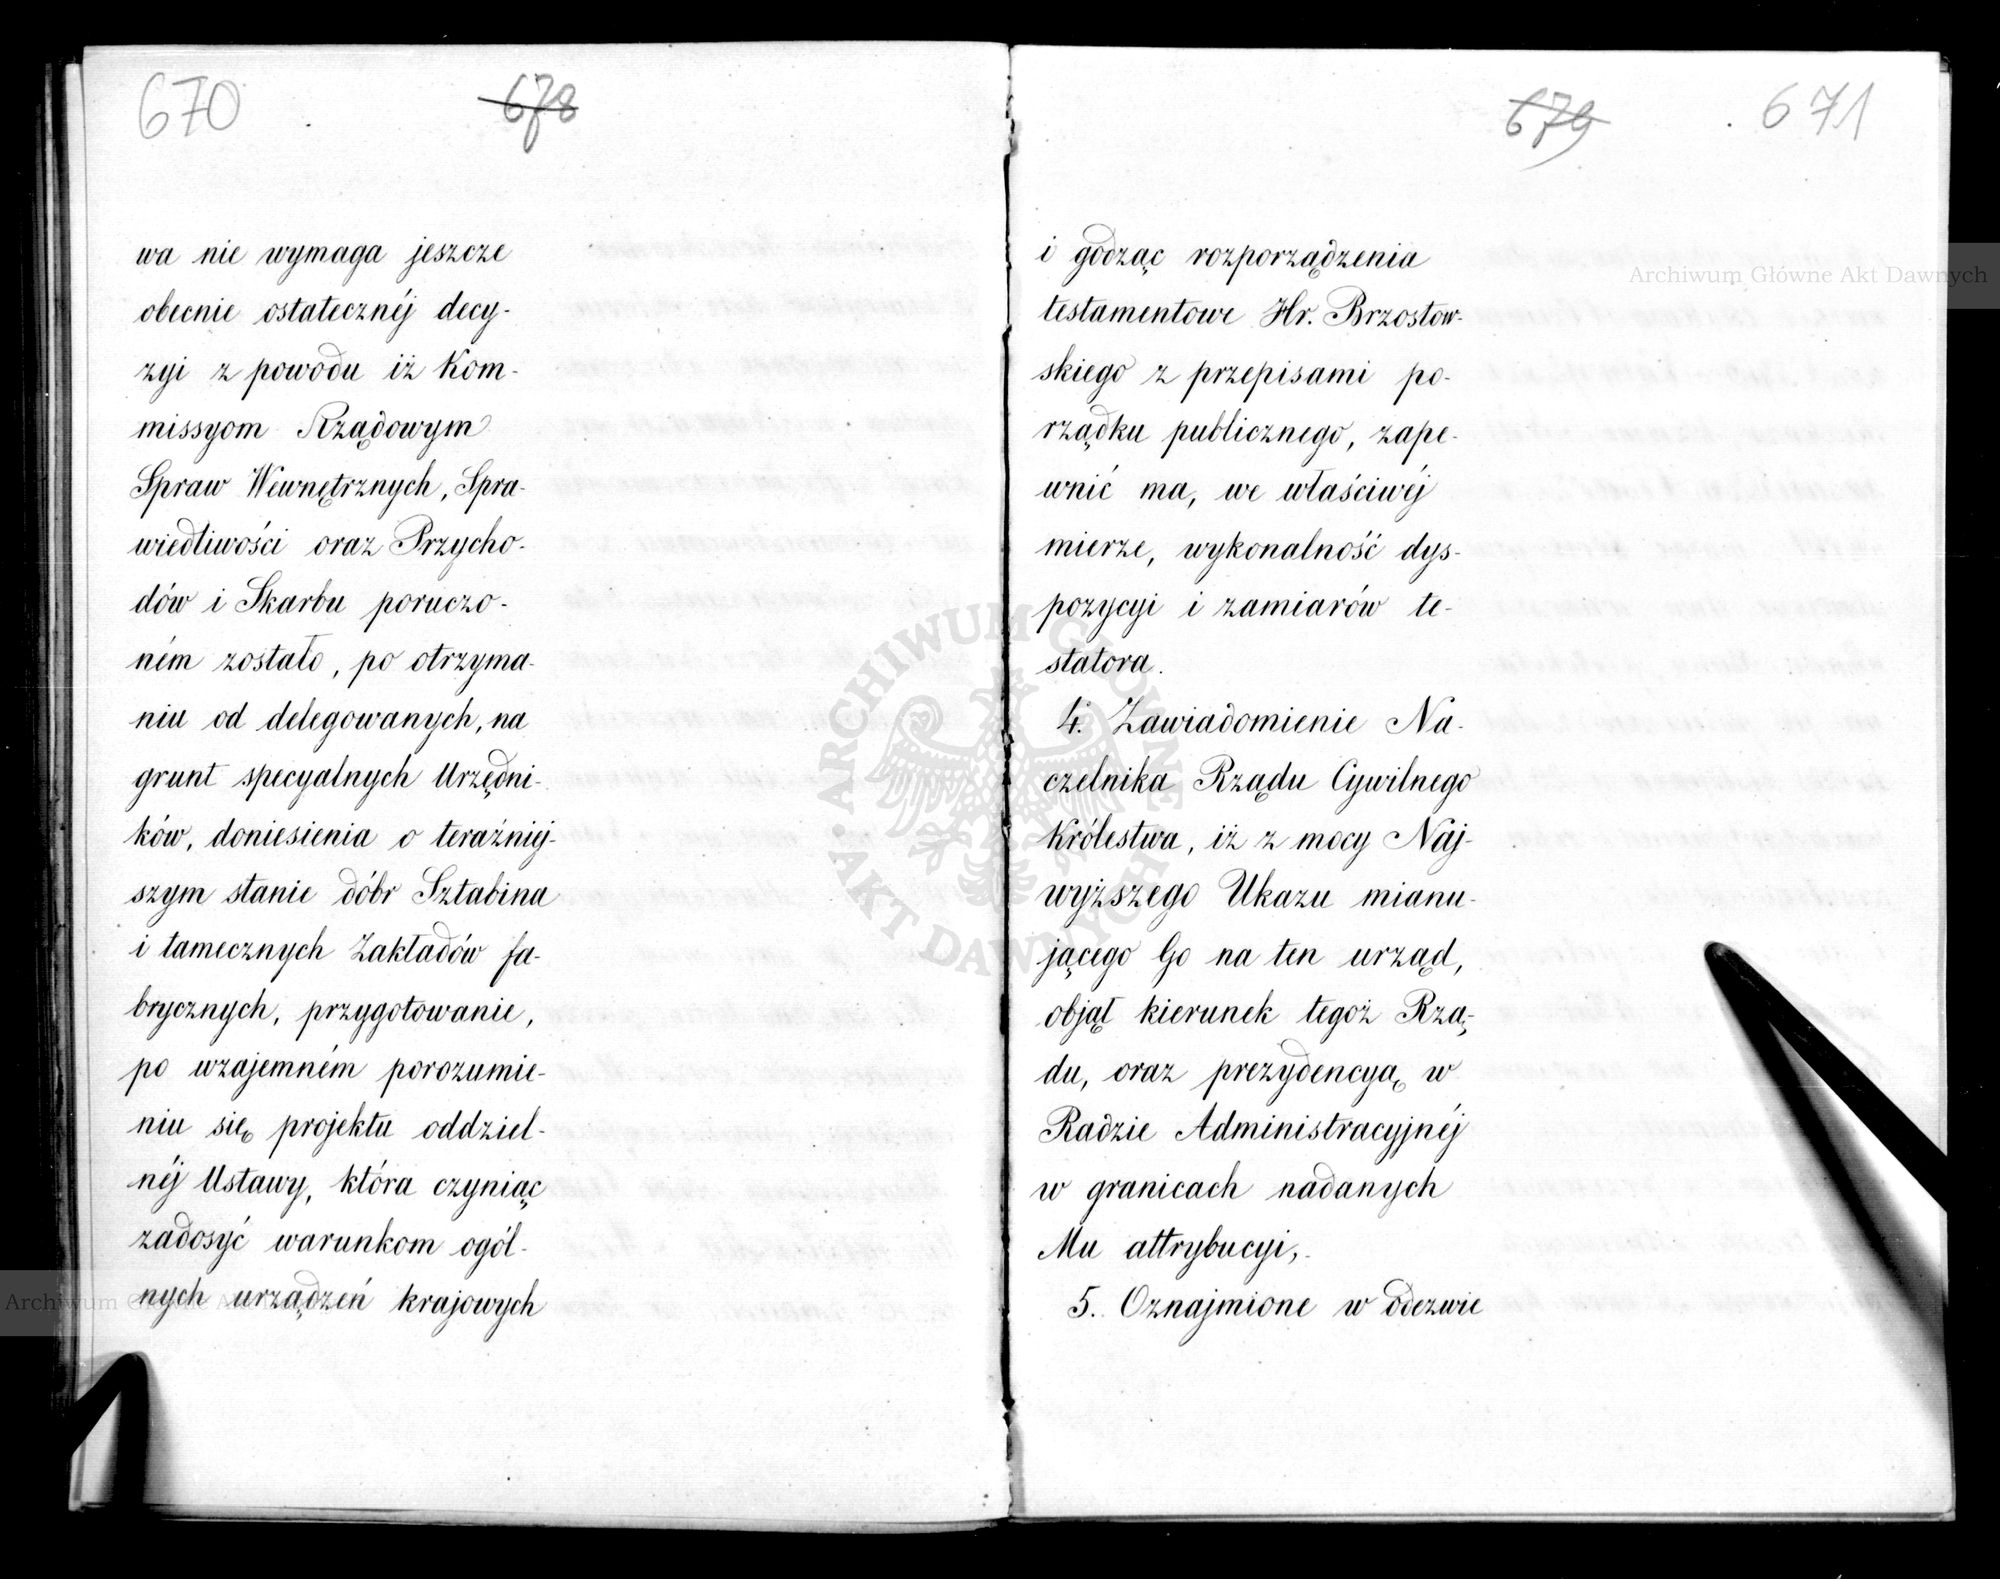 670
678
wa nie wymaga jeszcze
obecnie ostatecznéj decy-
zyi z powodu iż Kom-
missyom Rządowym
Spraw Wewnętrznych, Spra-
wiedliwości oraz Przycho-
dów i Skarbu poruczo-
ném zostało, po otrzyma-
niu od delegowanych, na
grunt specyalnych Urzędni-
ków, doniesienia o teraźniej-
szym stanie dóbr Sztabina
i tamecznych Zakładów fa-
brycznych, przygotowanie,
po wzajemném porozumie-
niu się, projektu oddziel-
néj Ustawy, która czyniąc
zadosyć warunkom ogól-
nych urządzeń krajowych
679
671
i godząc rozporządzenia
testamentowe Hr. Brzostow-
skiego z przepisami po-
rządku publicznego, zape-
wnić ma, we właściwéj
mierze, wykonalność dys-
pozycyi i zamiarów te-
statora.
4. Zawiadomienie Na-
czelnika Rządu Cywilnego
Królestwa, iż z mocy Naj-
wyższego Ukazu mianu-
jącego Go na ten urząd,
objął kierunek tegoż Rzą-
du, oraz prezydencyą w
Radzie Administracyjnéj
w granicach nadanych
Mu attrybucyi,.
5. Oznajmione w odezwie
Archiwum Główne Akt Dawnych
ARCHIWUM GŁÓWNE AKT DAWNYCH
Archiwum Główne Akt Dawnych